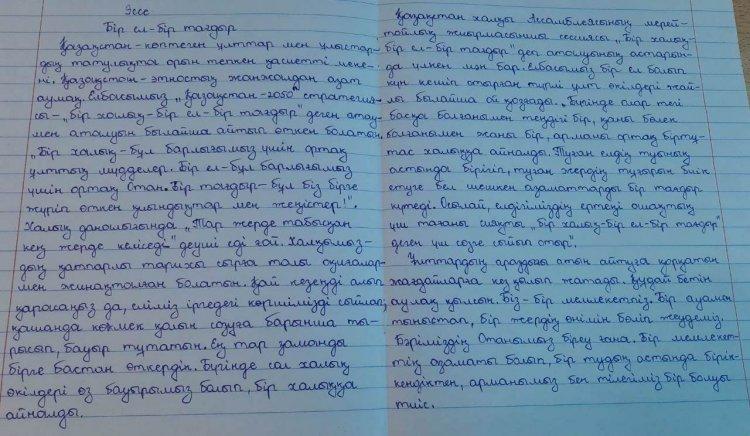 Эссе
Бір ел-бір тағдыр
Қазақстан-көптеген ұлттар мен ұлыстар-
дың татулықта орын тепкен қасиетті меке-
ні. Қазақстан-этностық жанжалдан азат
аумақ. Елбасымыз „Қазақстан-2050" стратегия-
сы-„бір халық-бір ел-бір тағдыр" деген атау-
мен аталуын былайша айтып өткен болатын.
„Бір халық-бұл барлығымыз үшін ортақ
ұлттық мүдделер. Бір ел-бұл барлығымыз
үшін ортақ Отан. Бір тағдыр-бұл біз бірге
жүріп өткен қиындықтар мен жеңістер!".
Халық даналығында „Тар жерде табысқан
кең жерде келіседі" деуші еді ғой. Халқымыз-
дың қатпарлы тарихы сырға толы оқиғалар-
мен жинақталған болатын. Қай кезеңді алып
қарасаңыз да, еліміз іргедегі көршімізді сыйлап,
қашанда көмек қолын созуға барынша ты-
рысып, бауыр тұтатын. Ең тар заманды
бірге бастан өткердік. Бүгінде сол халық
өкілдері өз бауырымыз болып, бір халыққа
айналды.
Қазақстан халқы Ассамблеясының мерей-
тойлық жиырмасыншы сессиясы „Бір халық-
бір ел-бір тағдыр" деп аталуының астарын-
да үлкен мән бар. Елбасымыз бір ел болып
күн кешіп отырған түрлі ұлт өкілдері жай-
лы былайша ой қозғады. „Бүгінде олар тегі
басқа болғанымен теңдігі бір, қаны бөлек
болғанымен жаны бір, арманы ортақ біртұ-
тас халыққа айналды. Туған елдің туының
астында бірігіп, туған жердің тұғырын биік
етуге бел шешкен азаматтарды бір тағдыр
күтеді. Осылай, елдігіміздің ертеңі ошақтың
үш тағаны сияқты „бір халық-бір ел-бір тағдыр"
деген үш сөзге сыйып отыр".
Ұлттардың араздығы атын айтуға қорқатын
жағдайларға кез қылып жатады. Құдай бетін
аулақ қылсын. Біз-бір мемлекетпіз. Бір ауамен
тыныстап, бір жердің өнімін бөліп жеудеміз.
Бәріміздің Отанымыз біреу ғана. Бір мемлекет-
тің азаматы болып, бір тудың астында бірік-
кендіктен, арманымыз бен тілегіміз бір болуы
тиіс.